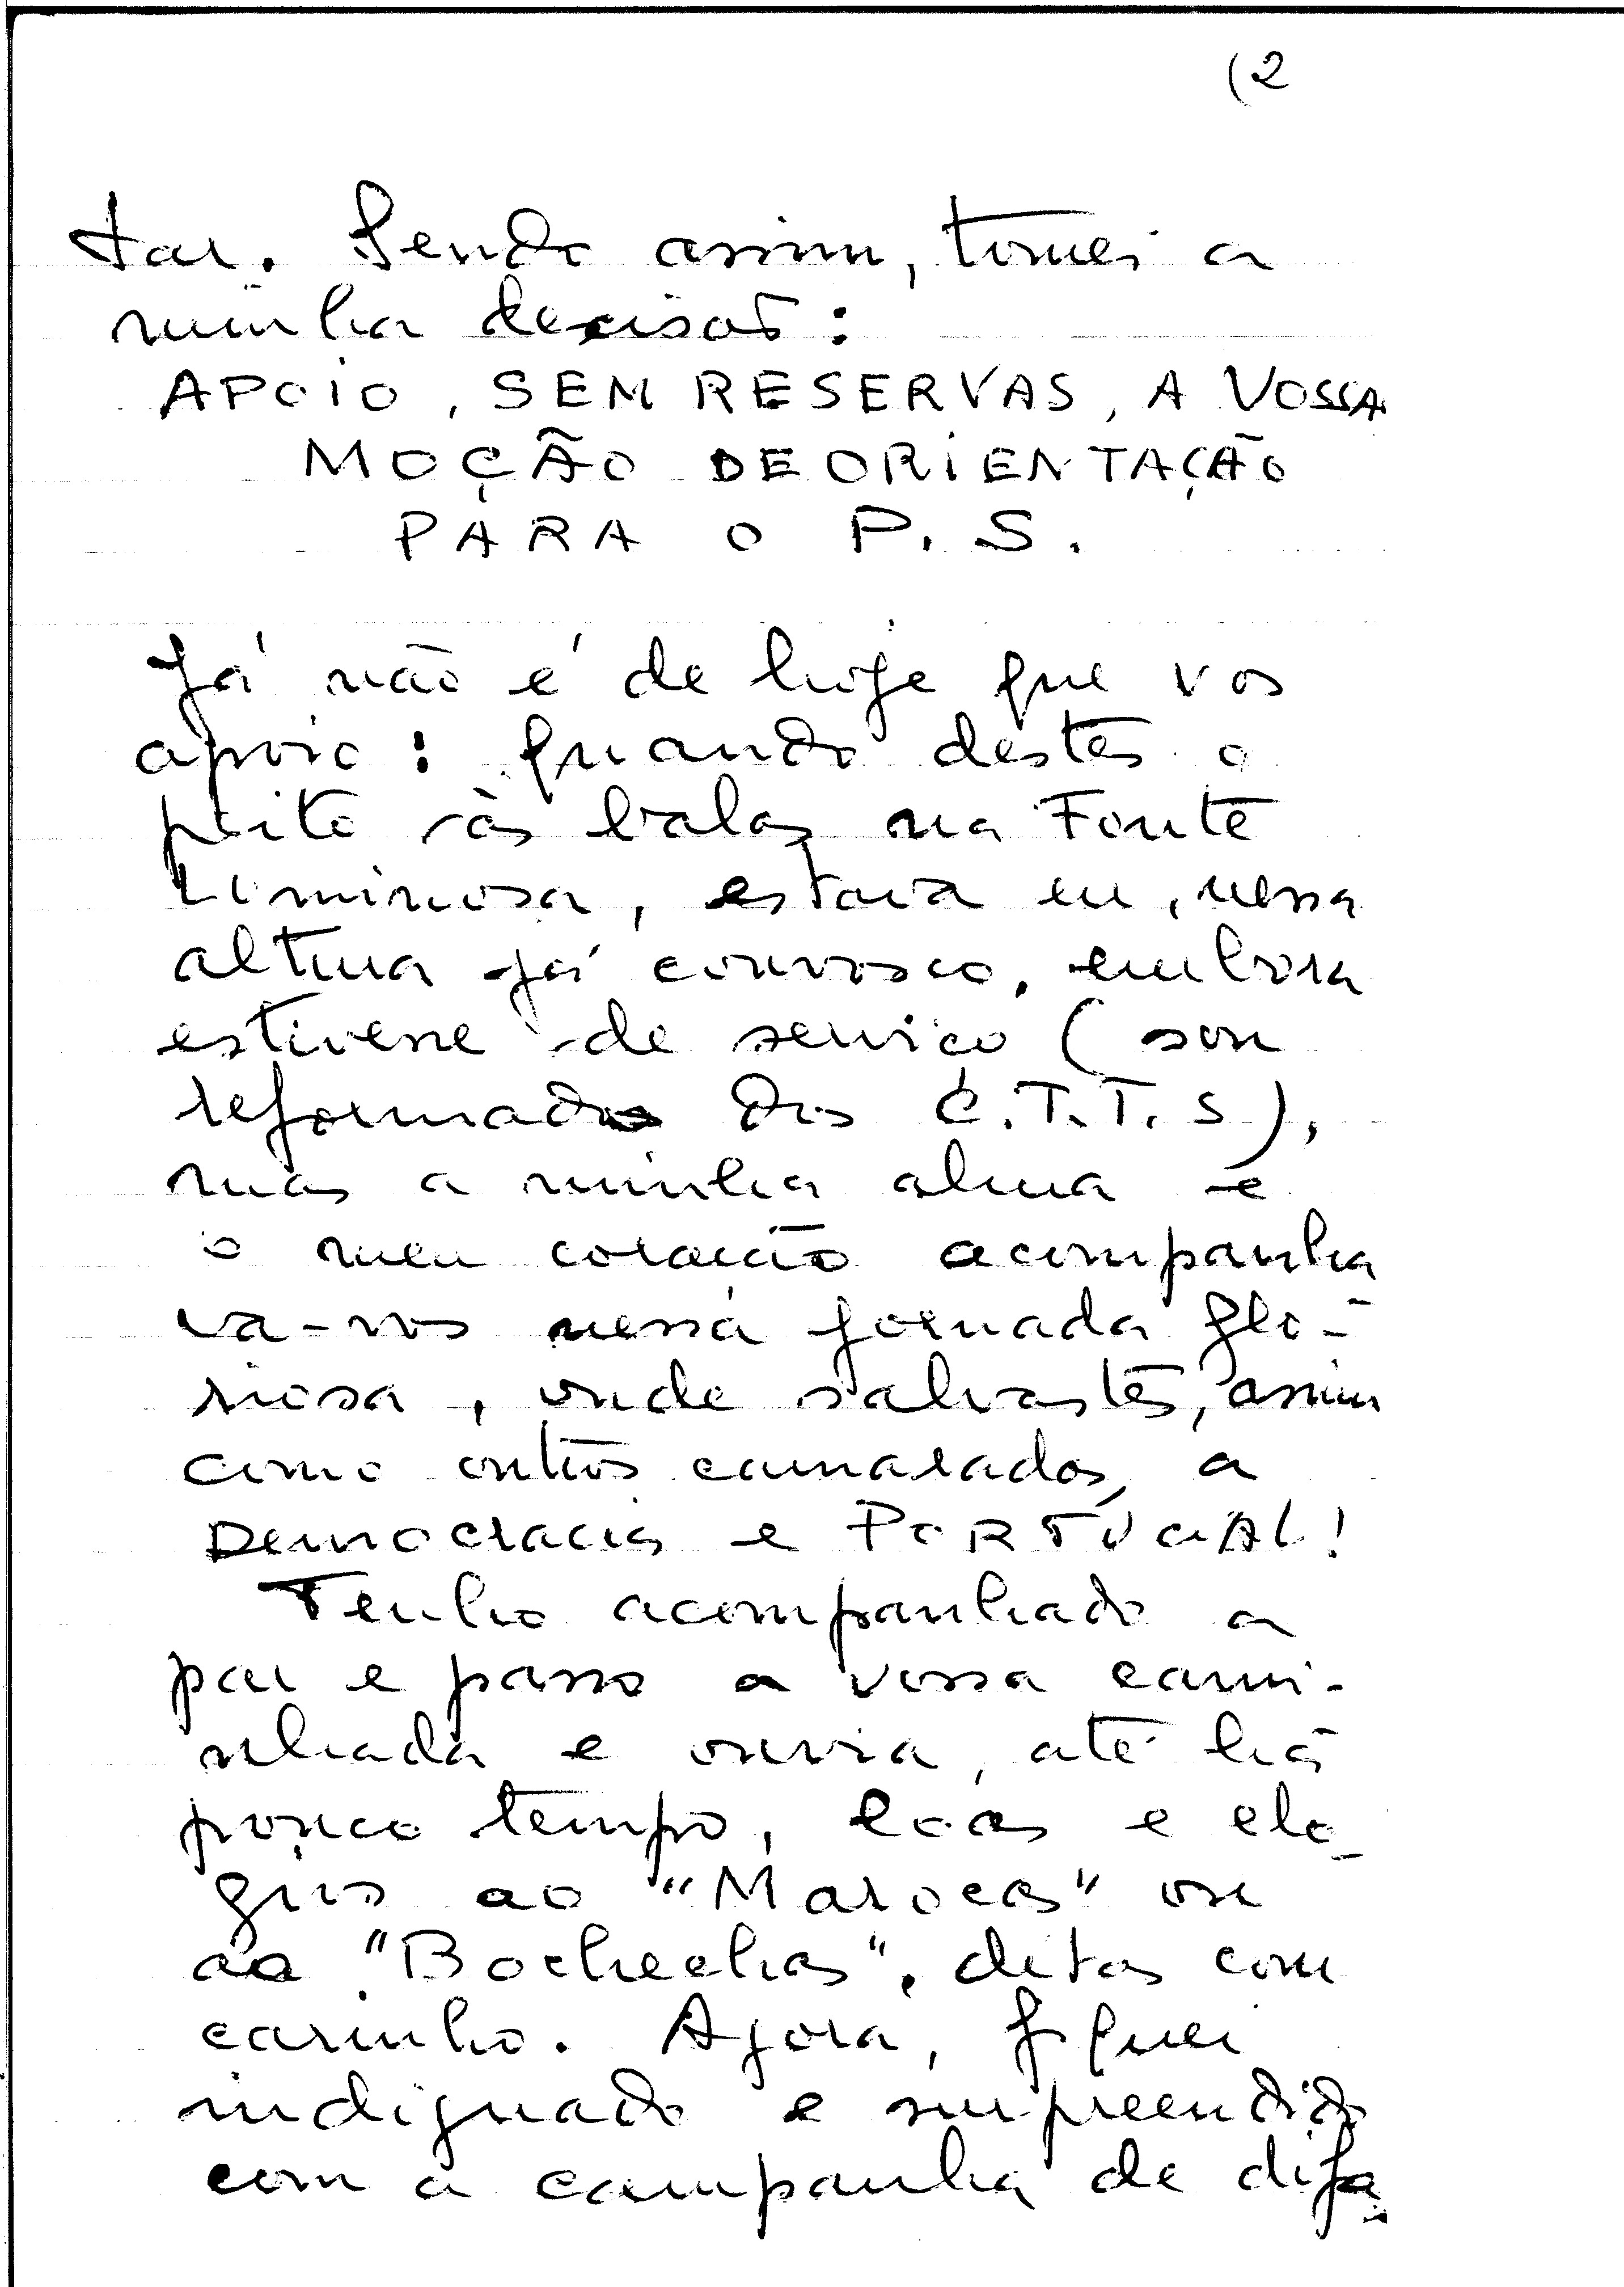 (2
tar. Sendo assim, tomei a
minha decisão:
APOIO, SEM RESERVAS, A VOSSA
MOÇÃO DE ORIENTAÇÃO
PARA O P. S.
Já não é de hoje que vos
apoio: quando destes o
peito às balas na Fonte
Luminosa, estava eu, nessa
altura já convosco, embora
estivesse de serviço (sou
reformado dos C.T.T.S),
mas a minha alma e
o meu coração acompanha
va-vos nessa jornada glo-
riosa, onde salvastes, assim
como outros camaradas, a
Democracia e PORTUGAL!
Tenho acompanhado a
par e passo a vossa cami-
nhada e ouvia, até há
pouco tempo, loas e elo-
gios ao "Marocas" ou
ao "Bochechas", ditas com
carinho. Agora, fiquei
indignado e surpreendido
com a campanha de difa-